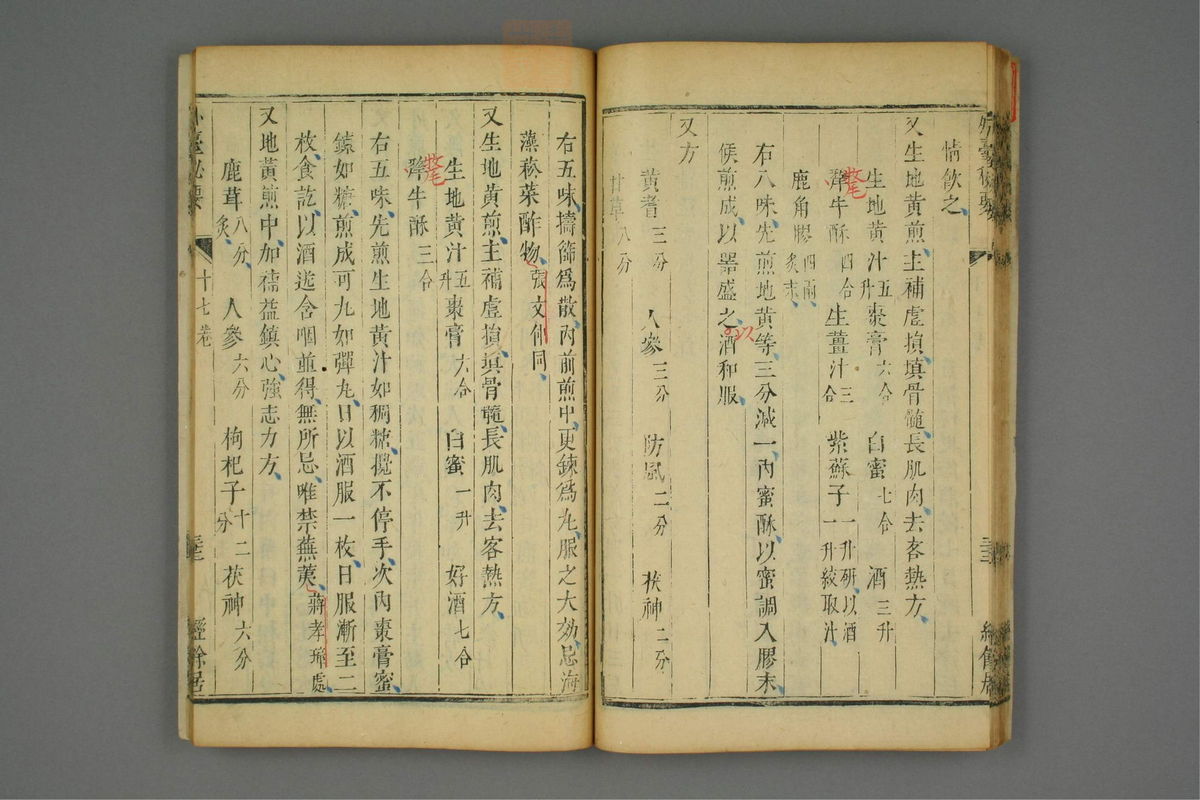 情飲之
又生地黃煎主補虛損填骨髓長肌肉去客熱方
生地黃汁五升 棗膏六合 白蜜七合 酒三升
犛牛酥四合 生薑汁三合 紫蘇子一升研以酒一升絞取汁
鹿角膠四兩炙末
右八味先煎地黃等三分減一內蜜酥以蜜調入膠末
候煎成以器盛之酒和服
以
又方
黃耆三分 人參三分 防風二分 茯神二分
甘草八分
右五味擣篩為散內前煎中更鍊為丸服之大効忌海
藻菘菜酢物張文仲同
又生地黃煎主補虛損填骨髓長肌肉去客熱方
生地黃汁五升 棗膏六合 白蜜一升 好酒七合
犛牛酥三合
右五味先煎生地黃汁如稠糖攪不停手次內棗膏蜜
鍊如糖煎成可丸如彈丸日以酒服一枚日服漸至二
枚食訖以酒送含咽並得無所忌唯禁蕪荑蔣孝琬處
又地黃煎中加補益鎮心強志力方
鹿茸八分炙 人參六分 枸杞子十二分 茯神六分
外臺秘要
十七卷
經餘居